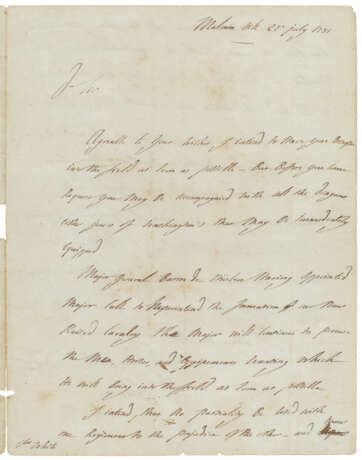 Malvan Hill 25th july 1781
Sir
Agreable to Your wishes I intend to Have Your Dragoons
into the field as Soon as possible – But Before You leave
You May Be accompagnied with all the dragoons
of Washington's that May Be immediately
Equipped
Major General Baron de Steuben Having appointed
Major Call to Superintend the formation of our New
Raised Cavalry That Major will Continue to procure
the Men, Horses, and Equipements
He will bring into the field as Soon as possible.
I intend, that No partiality Be Used with
one Regiment to the prejudice of the other – and
Col. White